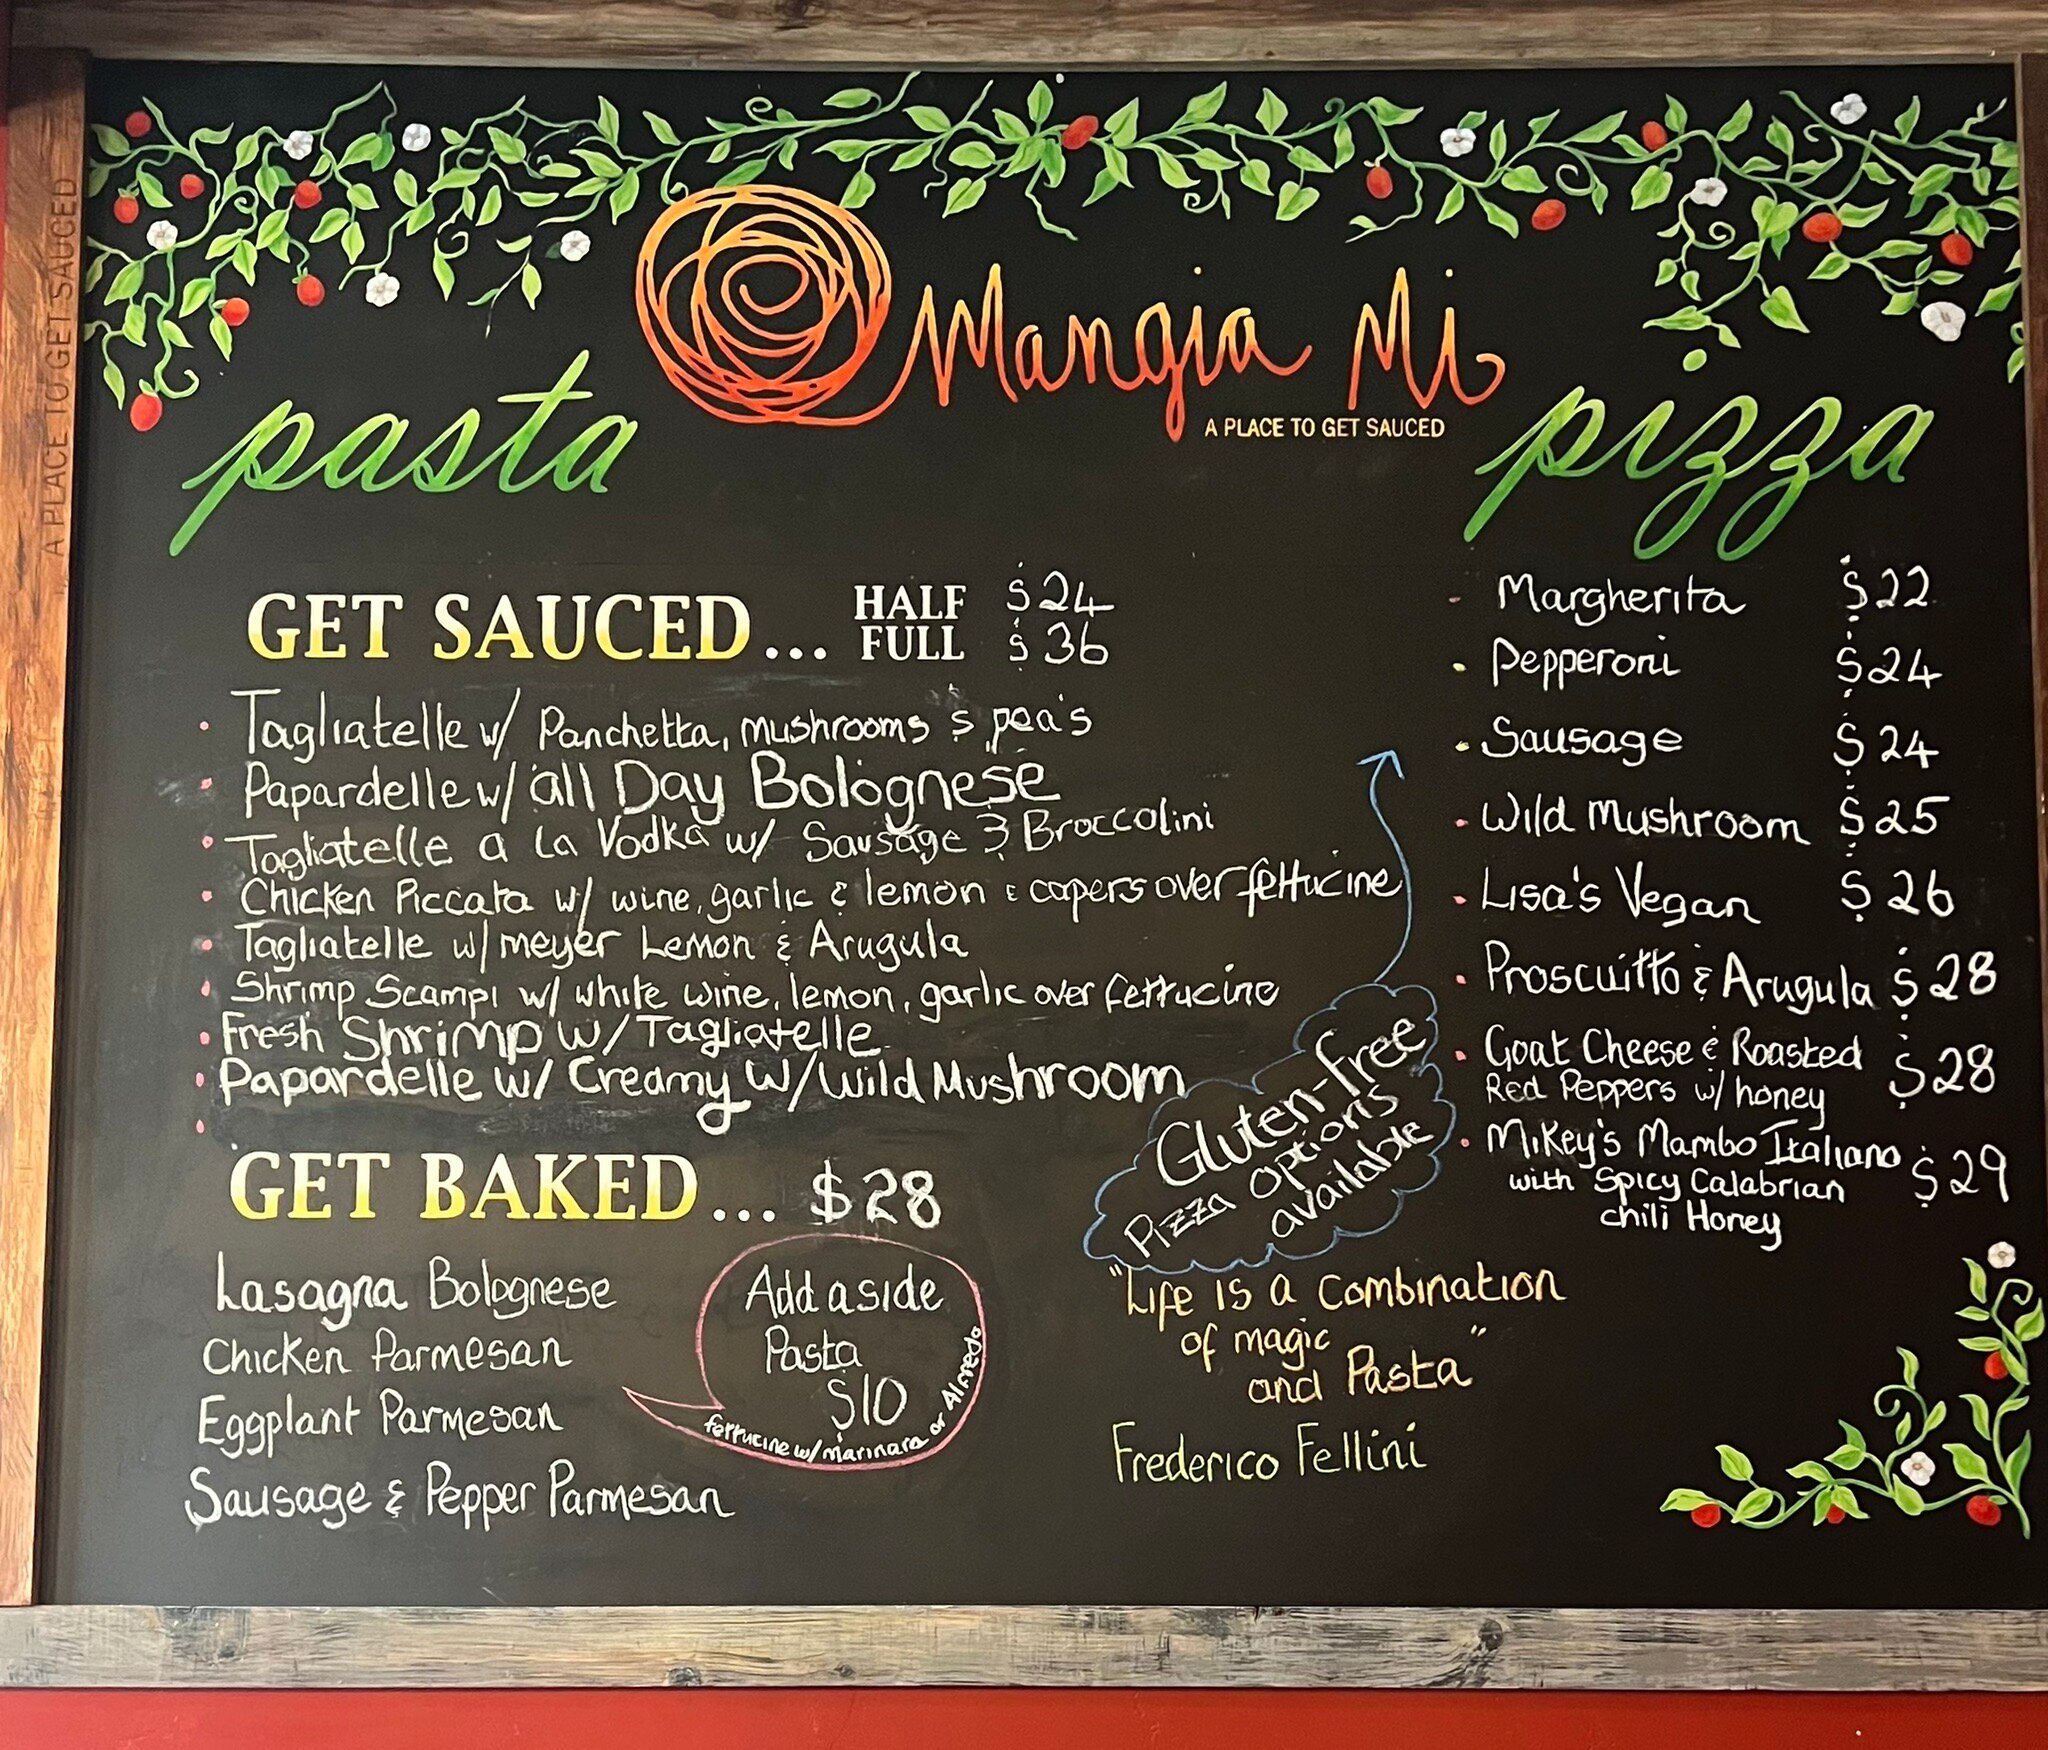 A PLACE TO GET SAUCED
Mangia Mi
A PLACE TO GET SAUCED
pasta
GET SAUCED... HALF $24
FULL $36
• Tagliatelle w/ Panchetta, mushrooms & pea's
• Papardelle w/ all Day Bolognese
• Tagliatelle a La Vodka w/ Sausage & Broccolini
• Chicken Piccata w/ wine, garlic & lemon & capers over fettucine
• Tagliatelle w/ meyer Lemon & Arugula
• Shrimp Scampi w/ white wine, lemon, garlic over fettucine
• Fresh Shrimp w/ Tagliatelle
• Papardelle w/ Creamy w/ Wild Mushroom
•
GET BAKED... $28
Lasagna Bolognese
Chicken Parmesan
Eggplant Parmesan
Sausage & Pepper Parmesan
Add a side
Pasta
$10
fettucine w/ marinara or Alfredo
pizza
- Margherita $22
• Pepperoni $24
• Sausage $24
• Wild Mushroom $25
• Lisa's Vegan $26
• Proscuitto & Arugula $28
• Goat Cheese & Roasted
Red Peppers w/ honey $28
• Mikey's Mambo Italiano
with Spicy Calabrian $29
chili Honey
Gluten-free
Pizza Options
available
"Life is a combination
of magic
and Pasta"
Frederico Fellini